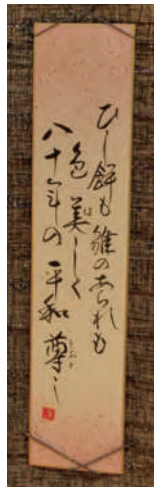 ひし餅も雛のあられも
色美(は)しく
八十年の平和尊(たふと)し